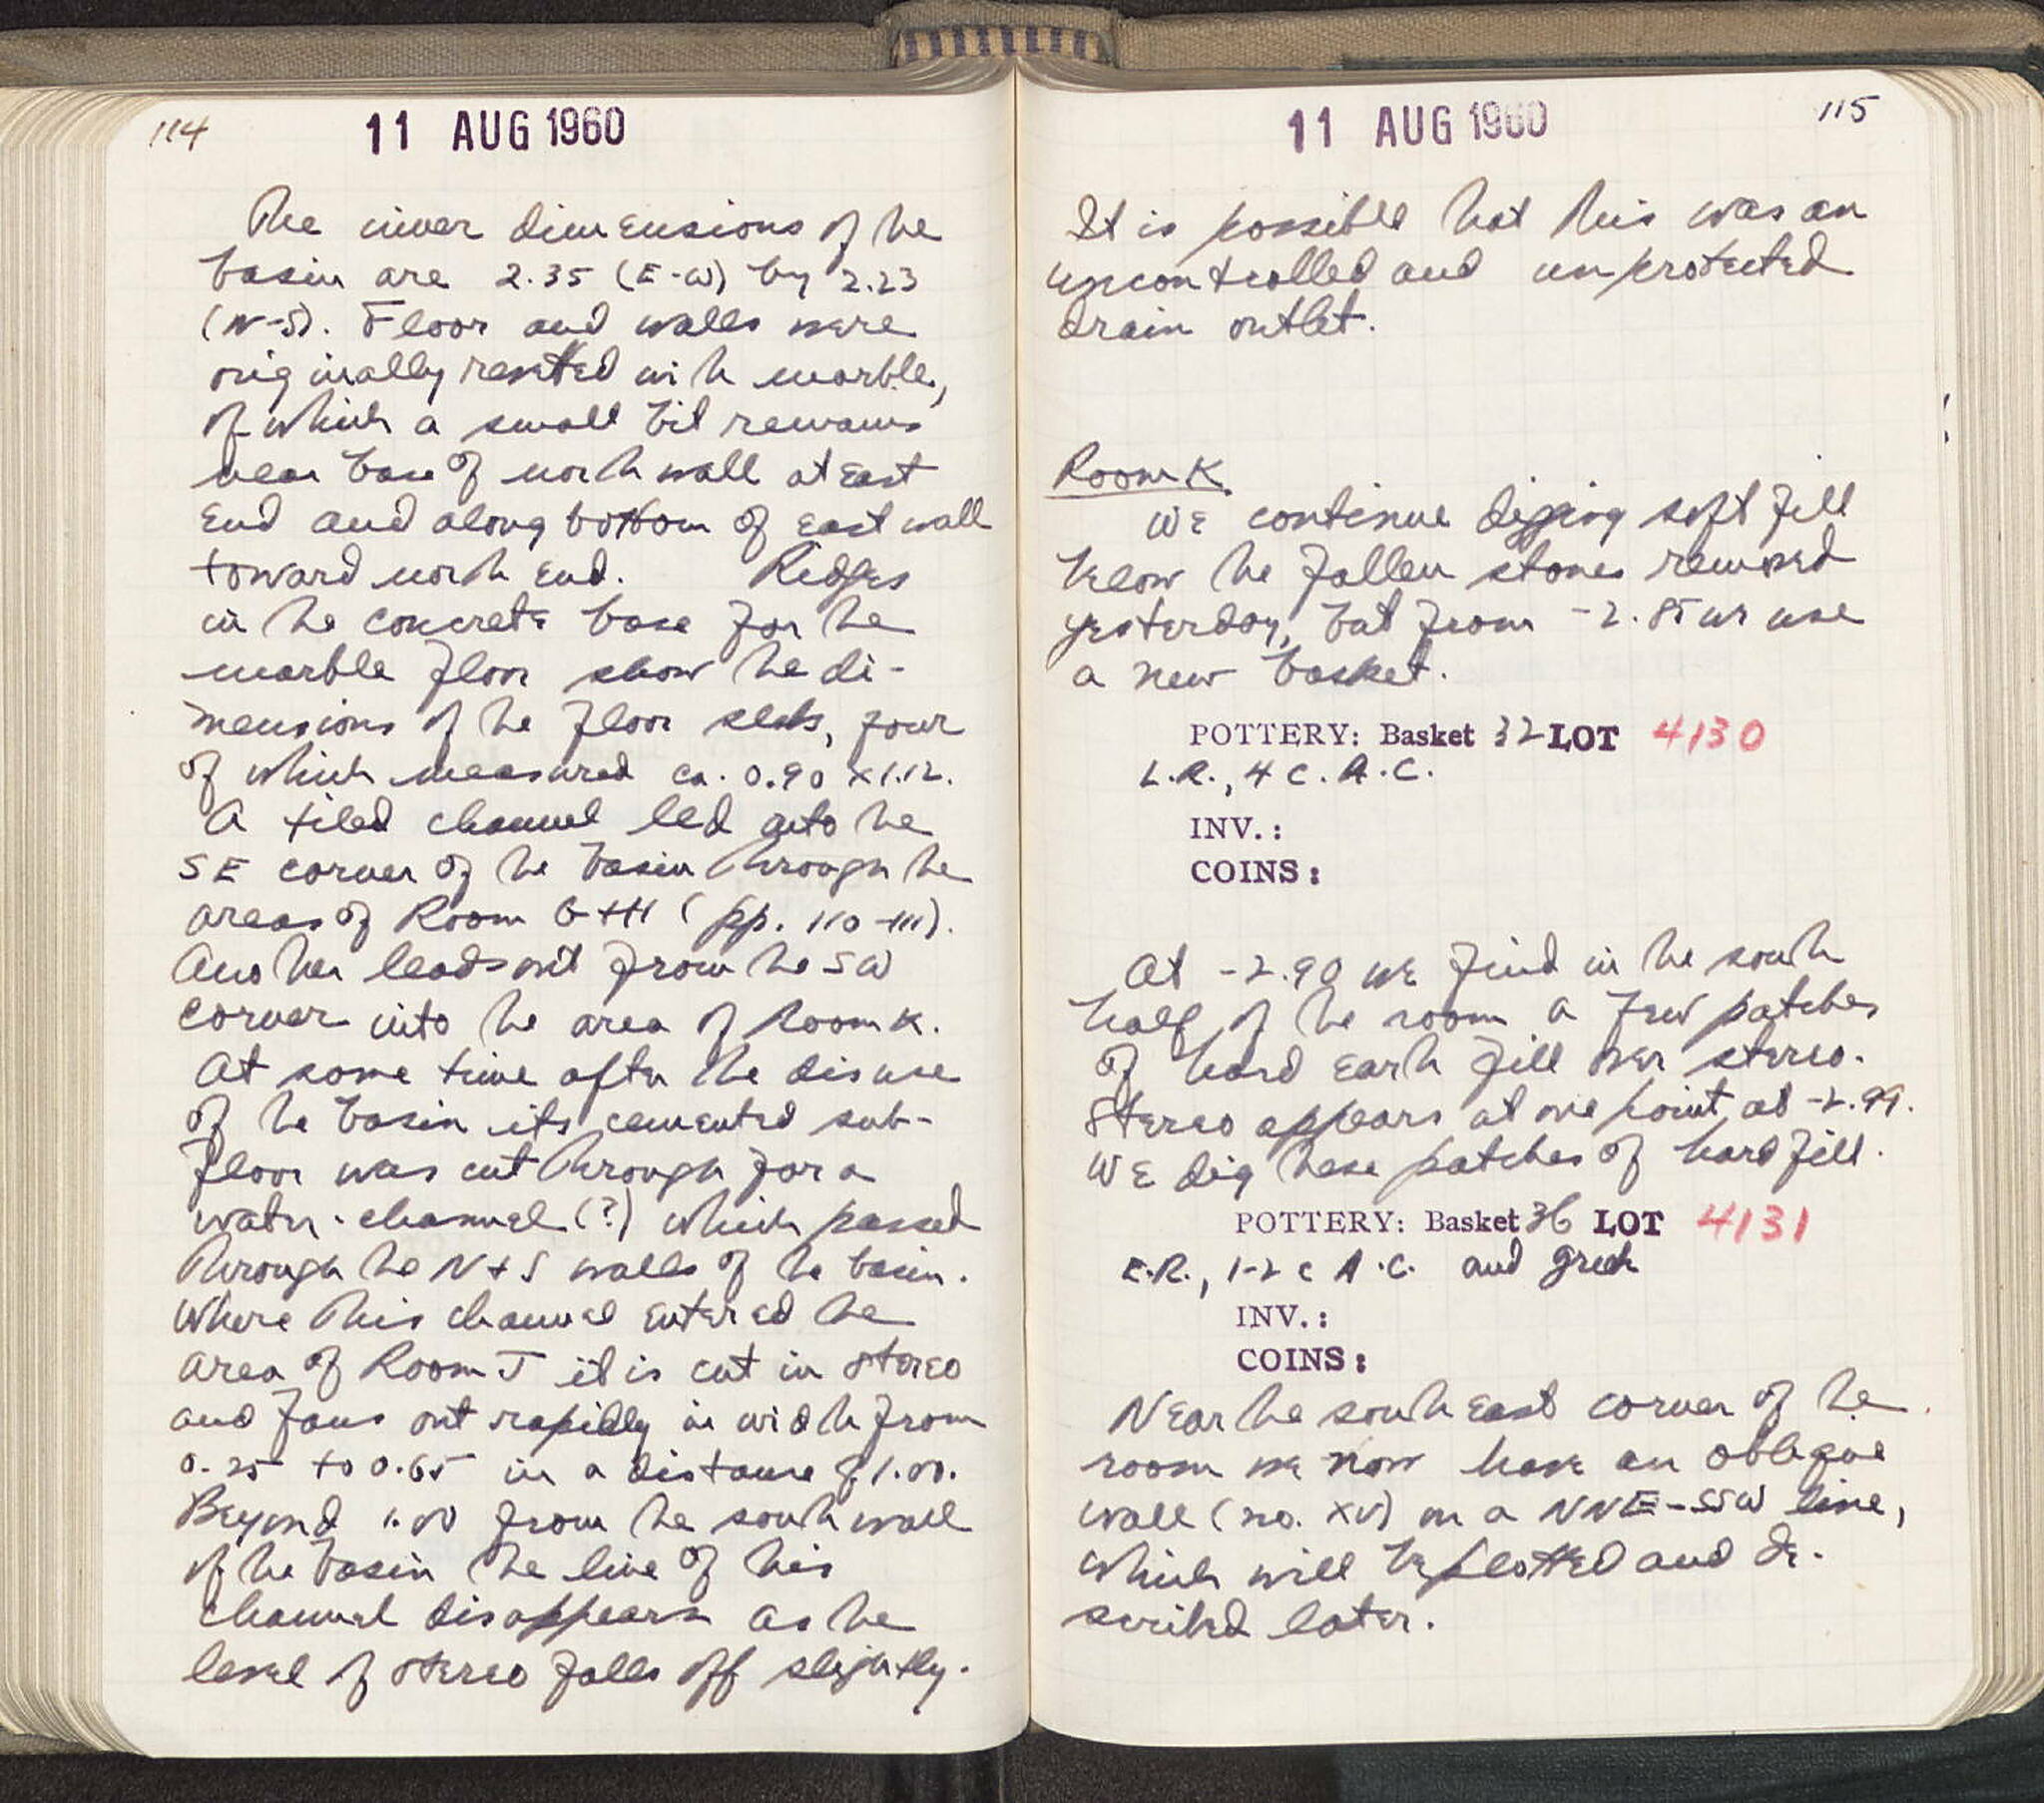 114
11 AUG 1960
The inner dimensions of the
basin are 2.35 (E-W) by 2.23
(N-S). Floor and walls were
originally revetted with marble,
of which a small bit remains
near base of north wall at east
end and along bottom of east wall
toward north end. Ridges
in the concrete base for the
marble floor show the di-
mensions of the floor slabs, four
of which measured ca. 0.90 x 1.12.
A tiled channel led into the
SE corner of the basin through the
areas of Room G+H (pp. 110-111).
Another leads out from the SW
corner into the area of Room K.
At some time after the disuse
of the basin its cemented sub-
floor was cut through for a
water-channel (?) which passed
through the N+S walls of the basin.
Where this channel entered the
area of Room J it is cut in stereo
and fans out rapidly in width from
0.25 to 0.65 in a distance of 1.00.
Beyond 1.00 from the south wall
of the basin the line of this
channel disappears as the
level of stereo falls off slightly.
115
11 AUG 1960
It is possible that this was an
uncontrolled and unprotected
drain outlet.
Room K.
We continue digging soft fill
below the fallen stones removed
yesterday, but from -2.85 we use
a new basket.
POTTERY: Basket 32 LOT 4130
L.R., 4 C. A.C.
INV.:
COINS:
At -2.90 we find in the south
half of the room a few patches
of hard earth fill over stereo.
Stereo appears at one point at -2.99.
We dig these patches of hard fill.
POTTERY: Basket 36 LOT 4131
E.R., 1-2 c A.C. and Greek
INV.:
COINS:
Near the southeast corner of the
room we now have an oblique
wall (no. XV) on a NNE-SSW line,
which will be plotted and de-
scribed later.